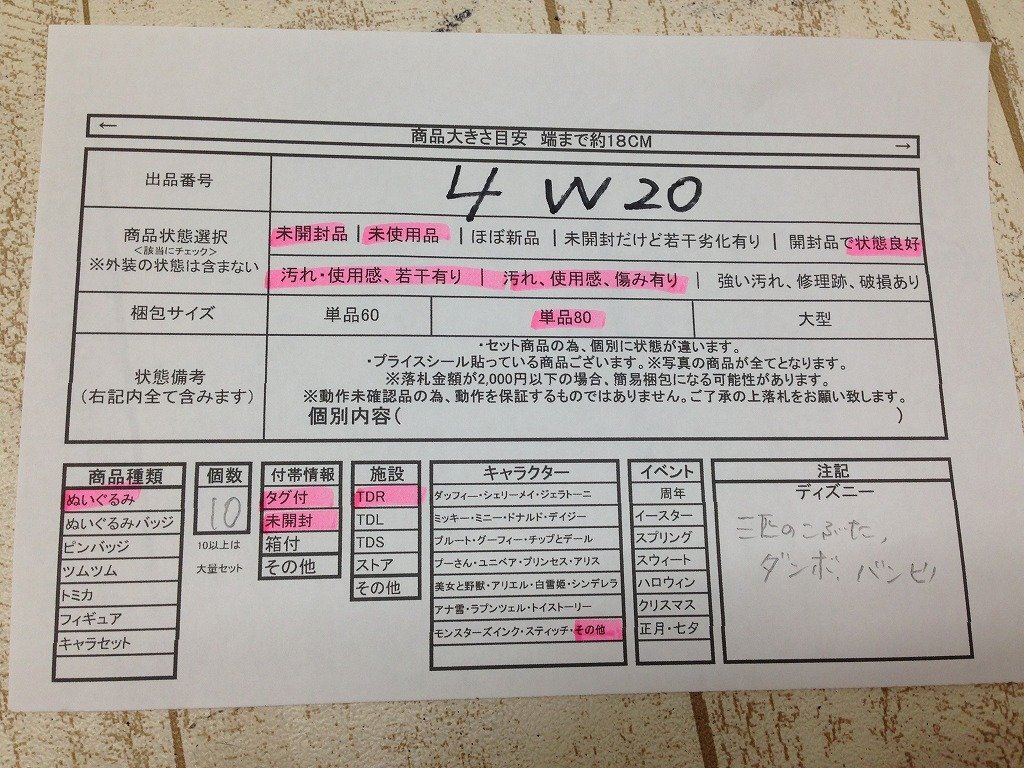 ← 商品大きさ目安 端まで約18CM →
出品番号 4 W 20
商品状態選択
<該当にチェック>
※外装の状態は含まない
未開封品 | 未使用品 | ほぼ新品 | 未開封だけど若干劣化有り | 開封品で状態良好
汚れ・使用感、若干有り | 汚れ、使用感、傷み有り | 強い汚れ、修理跡、破損あり
梱包サイズ 単品60 単品80 大型
状態備考
(右記内全て含みます)
・セット商品の為、個別に状態が違います。
・プライスシール貼っている商品ございます。※写真の商品が全てとなります。
※落札金額が2,000円以下の場合、簡易梱包になる可能性があります。
※動作未確認品の為、動作を保証するものではありません。ご了承の上落札をお願い致します。
個別内容( )
商品種類
ぬいぐるみ
ぬいぐるみバッジ
ピンバッジ
ツムツム
トミカ
フィギュア
キャラセット
個数
10
10以上は
大量セット
付帯情報
タグ付
未開封
箱付
その他
施設
TDR
TDL
TDS
ストア
その他
キャラクター
ダッフィー・シェリーメイ・ジェラトーニ
ミッキー・ミニー・ドナルド・デイジー
プルート・グーフィー・チップとデール
プーさん・ユニベア・プリンセス・アリス
美女と野獣・アリエル・白雪姫・シンデレラ
アナ雪・ラプンツェル・トイストーリー
モンスターズインク・スティッチ・その他
イベント
周年
イースター
スプリング
スウィート
ハロウィン
クリスマス
正月・七夕
注記
ディズニー
三匹のこぶた,
ダンボ、バンビ/